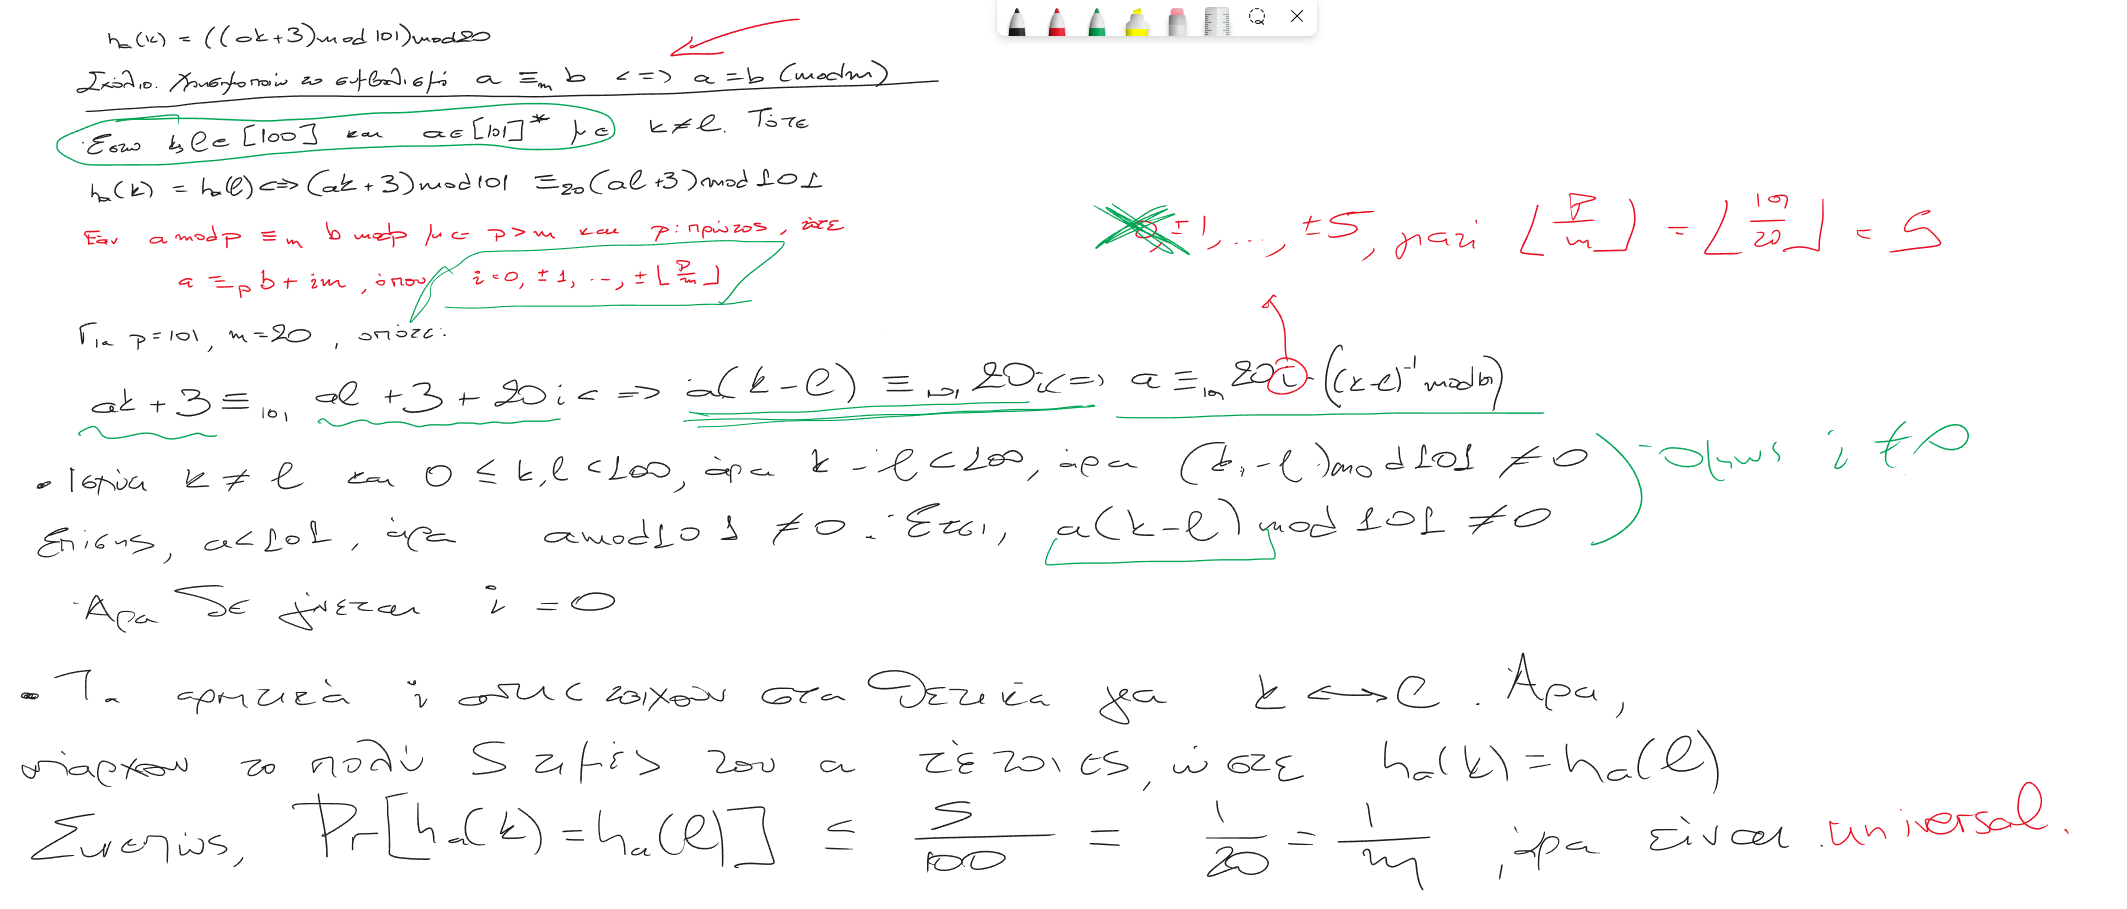 h_a(k) = ((ak+3) mod 101) mod 20
Σχόλιο. Χρησιμοποιώ το συμβολισμό a ≡_m b <=> a = b (mod m)
Έστω k, l ∈ [100] και a ∈ [101]* με k ≠ l. Τότε
h_a(k) = h_a(l) <=> (ak+3) mod 101 ≡_20 (al+3) mod 101
Εάν a mod p ≡_m b mod p με p > m και p: πρώτος, τότε
a ≡_p b + im, όπου i = 0, ±1, ..., ±⌊p/m⌋
±1, ..., ±5, γιατί ⌊p/m⌋ = ⌊101/20⌋ = 5
Για p = 101, m = 20, οπότε:
ak + 3 ≡_101 al + 3 + 20i <=> a(k-l) ≡_101 20i <=> a ≡_101 20i · ((k-l)^-1 mod 101)
• Ισχύει k ≠ l και 0 ≤ k, l < 100, άρα k - l < 100, άρα (k - l) mod 101 ≠ 0
Όμως i ≠ 0
Επίσης, a < 101, άρα a mod 101 ≠ 0. Έτσι, a(k-l) mod 101 ≠ 0
Άρα δε γίνεται i = 0
• Τα αρνητικά i αντιστοιχούν στα θετικά για k <-> l. Άρα,
υπάρχουν το πολύ 5 τιμές του a τέτοιες, ώστε h_a(k) = h_a(l)
Συνεπώς, Pr[h_a(k) = h_a(l)] ≤ 5/100 = 1/20 = 1/m, άρα είναι universal.